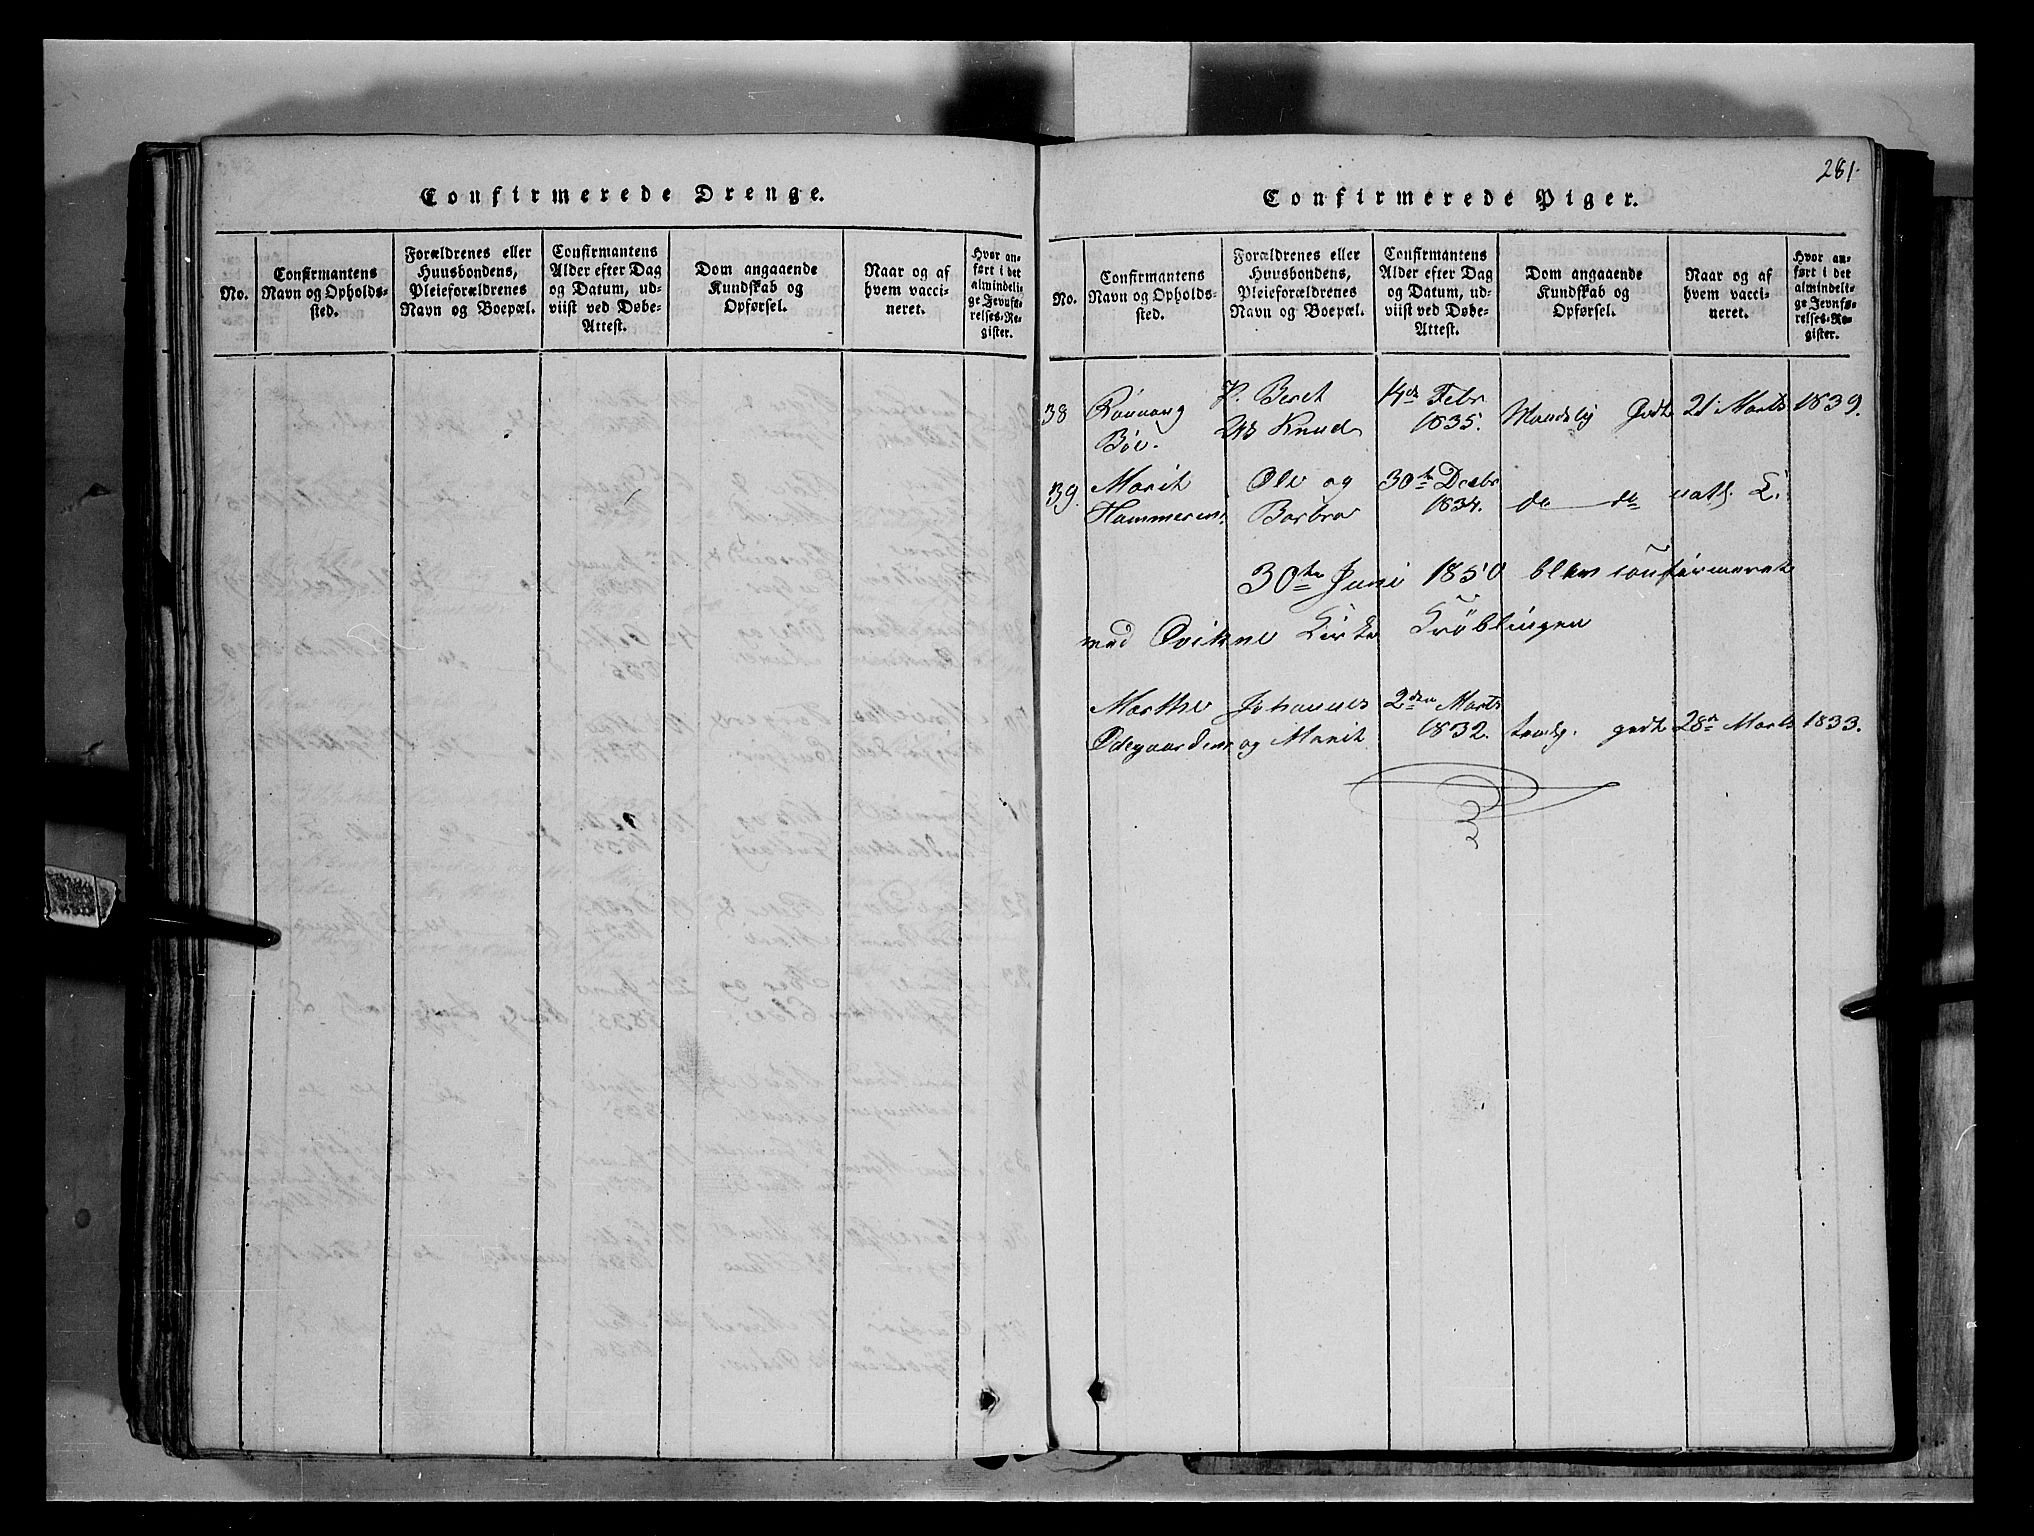 Confirmerede Drenge.
No.
Confirmantens
Navn og Opholds-
sted.
Forældrenes eller
Huusbondens,
Pleieforældrenes
Navn og Boepæl.
Confirmantens
Alder efter Dag
og Datum, ud-
viist ved Døbe-
Attest.
Dom angaaende
Kundskab og
Opførsel.
Naar og af
hvem vacci-
neret.
Hvor an-
ført i det
almindeli-
ge Jevnfø-
relses-Re-
gister.
281.
Confirmerede Piger.
No.
Confirmantens
Navn og Opholds-
sted.
Forældrenes eller
Huusbondens,
Pleieforældrenes
Navn og Boepæl.
Confirmantens
Alder efter Dag
og Datum, ud-
viist ved Døbe-
Attest.
Dom angaaende
Kundskab og
Opførsel.
Naar og af
hvem vacci-
neret.
Hvor an-
ført i det
almindeli-
ge Jevnfø-
relses-Re-
gister.
P. Beret 4de Febr
38 Rønnaug Knud 1835. Maadelig Godt 21 Marts 1839.
Bøe.
Marit Ole og 30te Decbr
39. Hammeren. Barbro 1834. do do natl. L.
30te Juni 1850 blev confirmeret
ved Qvikne Kirke Trøblingen
Marthe Johannes 2den Marts
Ødegaarden og Marit 1832. temg. godt 28n Marts 1833.